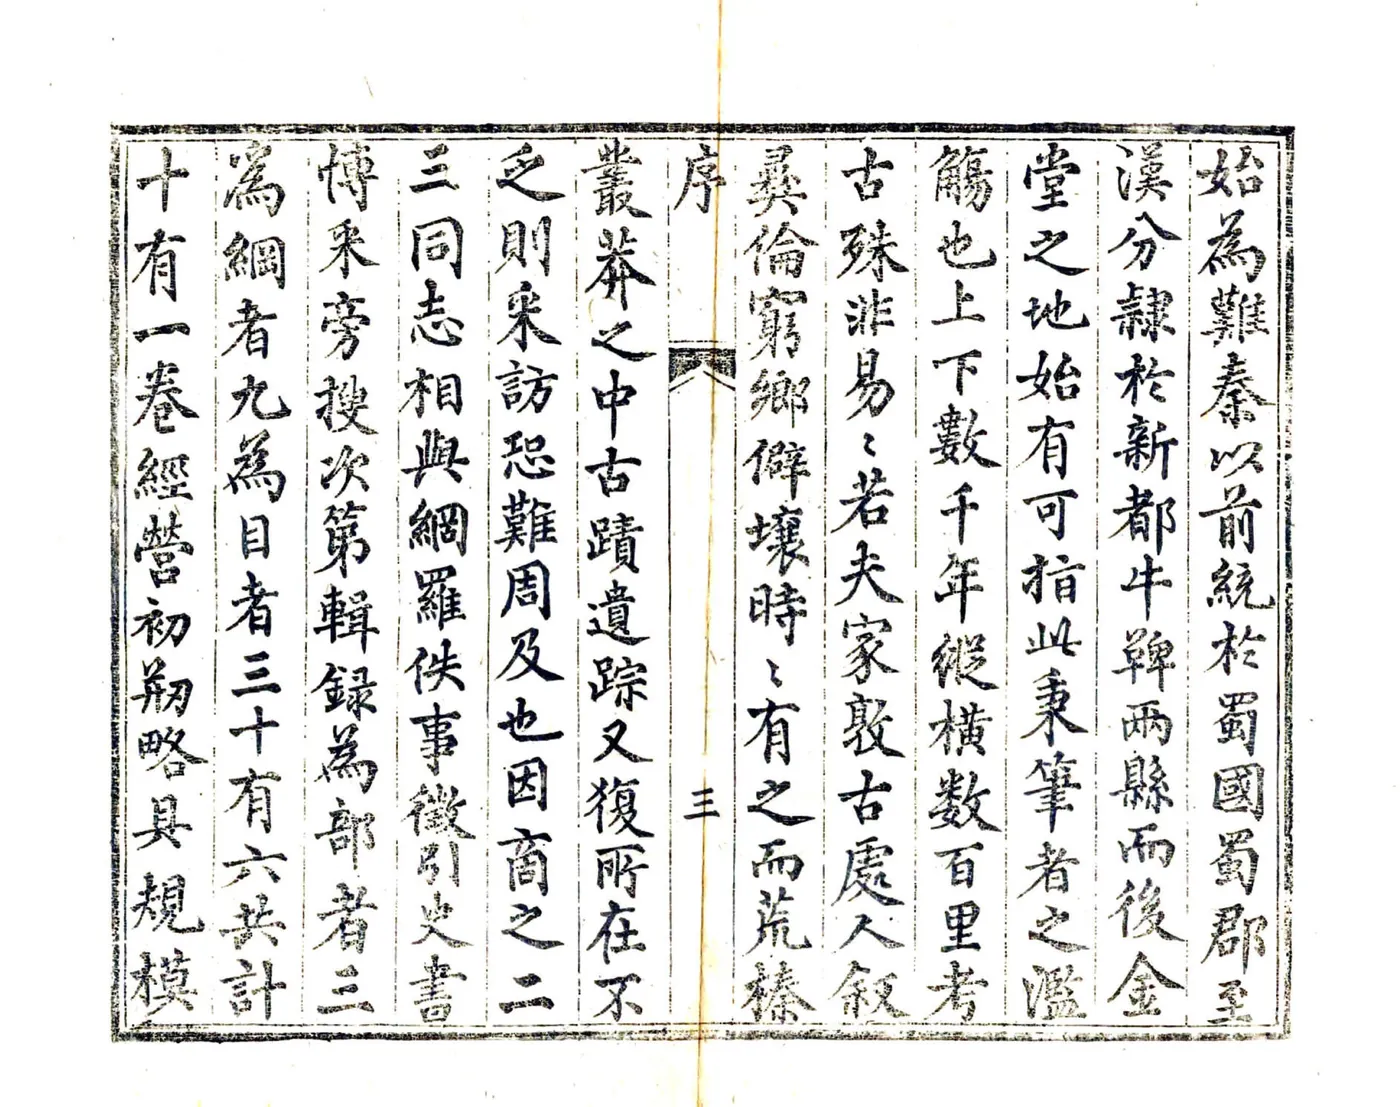 始為難秦以前統於蜀國蜀郡至
漢分隸於新都牛鞞兩縣而後金
堂之地始有可指此秉筆者之濫
觴也上下數千年縱橫数百里考
古殊非易〻若夫家敦古處人敘
彝倫窮鄉僻壤時〻有之而荒榛
序
三
叢莽之中古蹟遺踪又復所在不
乏則采訪恐難周及也因商之二
三同志相與網羅佚事徵引史書
愽采旁搜次第輯録為部者三
為綱者九為目者三十有六共計
十有一卷經營初剏略具規模